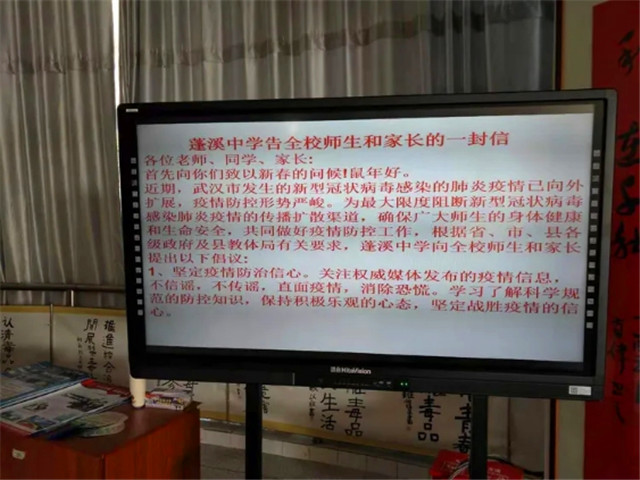 蓬溪中学告全校师生和家长的一封信
各位老师、同学、家长:
首先向你们致以新春的问候!鼠年好。
近期，武汉市发生的新型冠状病毒感染的肺炎疫情已向外
扩展，疫情防控形势严峻。为最大限度阻断新型冠状病毒
感染肺炎疫情的传播扩散渠道，确保广大师生的身体健康
和生命安全，共同做好疫情防控工作，根据省、市、县各
级政府及县教体局有关要求，蓬溪中学向全校师生和家长
提出以下倡议:
1、坚定疫情防治信心。关注权威媒体发布的疫情信息，
不信谣，不传谣，直面疫情，消除恐慌。学习了解科学规
范的防控知识，保持积极乐观的心态，坚定战胜疫情的信
心。
HiteVision
毒品
生活